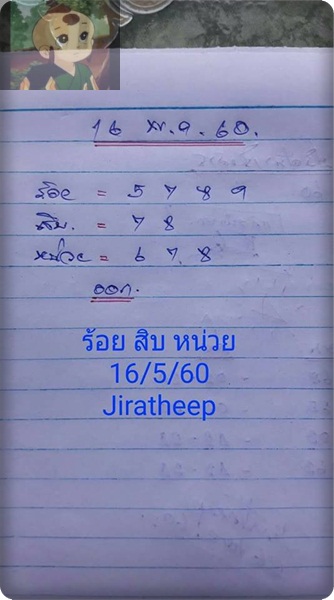 16 พ.ค. 60.
ร้อย = 5 7 8 9
สิบ. = 7 8
หน่วย = 6 7 8
ออก.
ร้อย สิบ หน่วย
16/5/60
Jiratheep